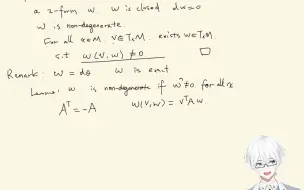 a 2-form w. w is closed dw=0
w is non-degenerate.
For all x∈M. V∈TₓM. exists w∈TₓM
s.t w(v,w) ≠0
Remark: w = dθ w is exact
Lemma: w is non-degenerate if wⁿ≠0 for all x
Aᵀ=-A w(v,w) = vᵀA w.